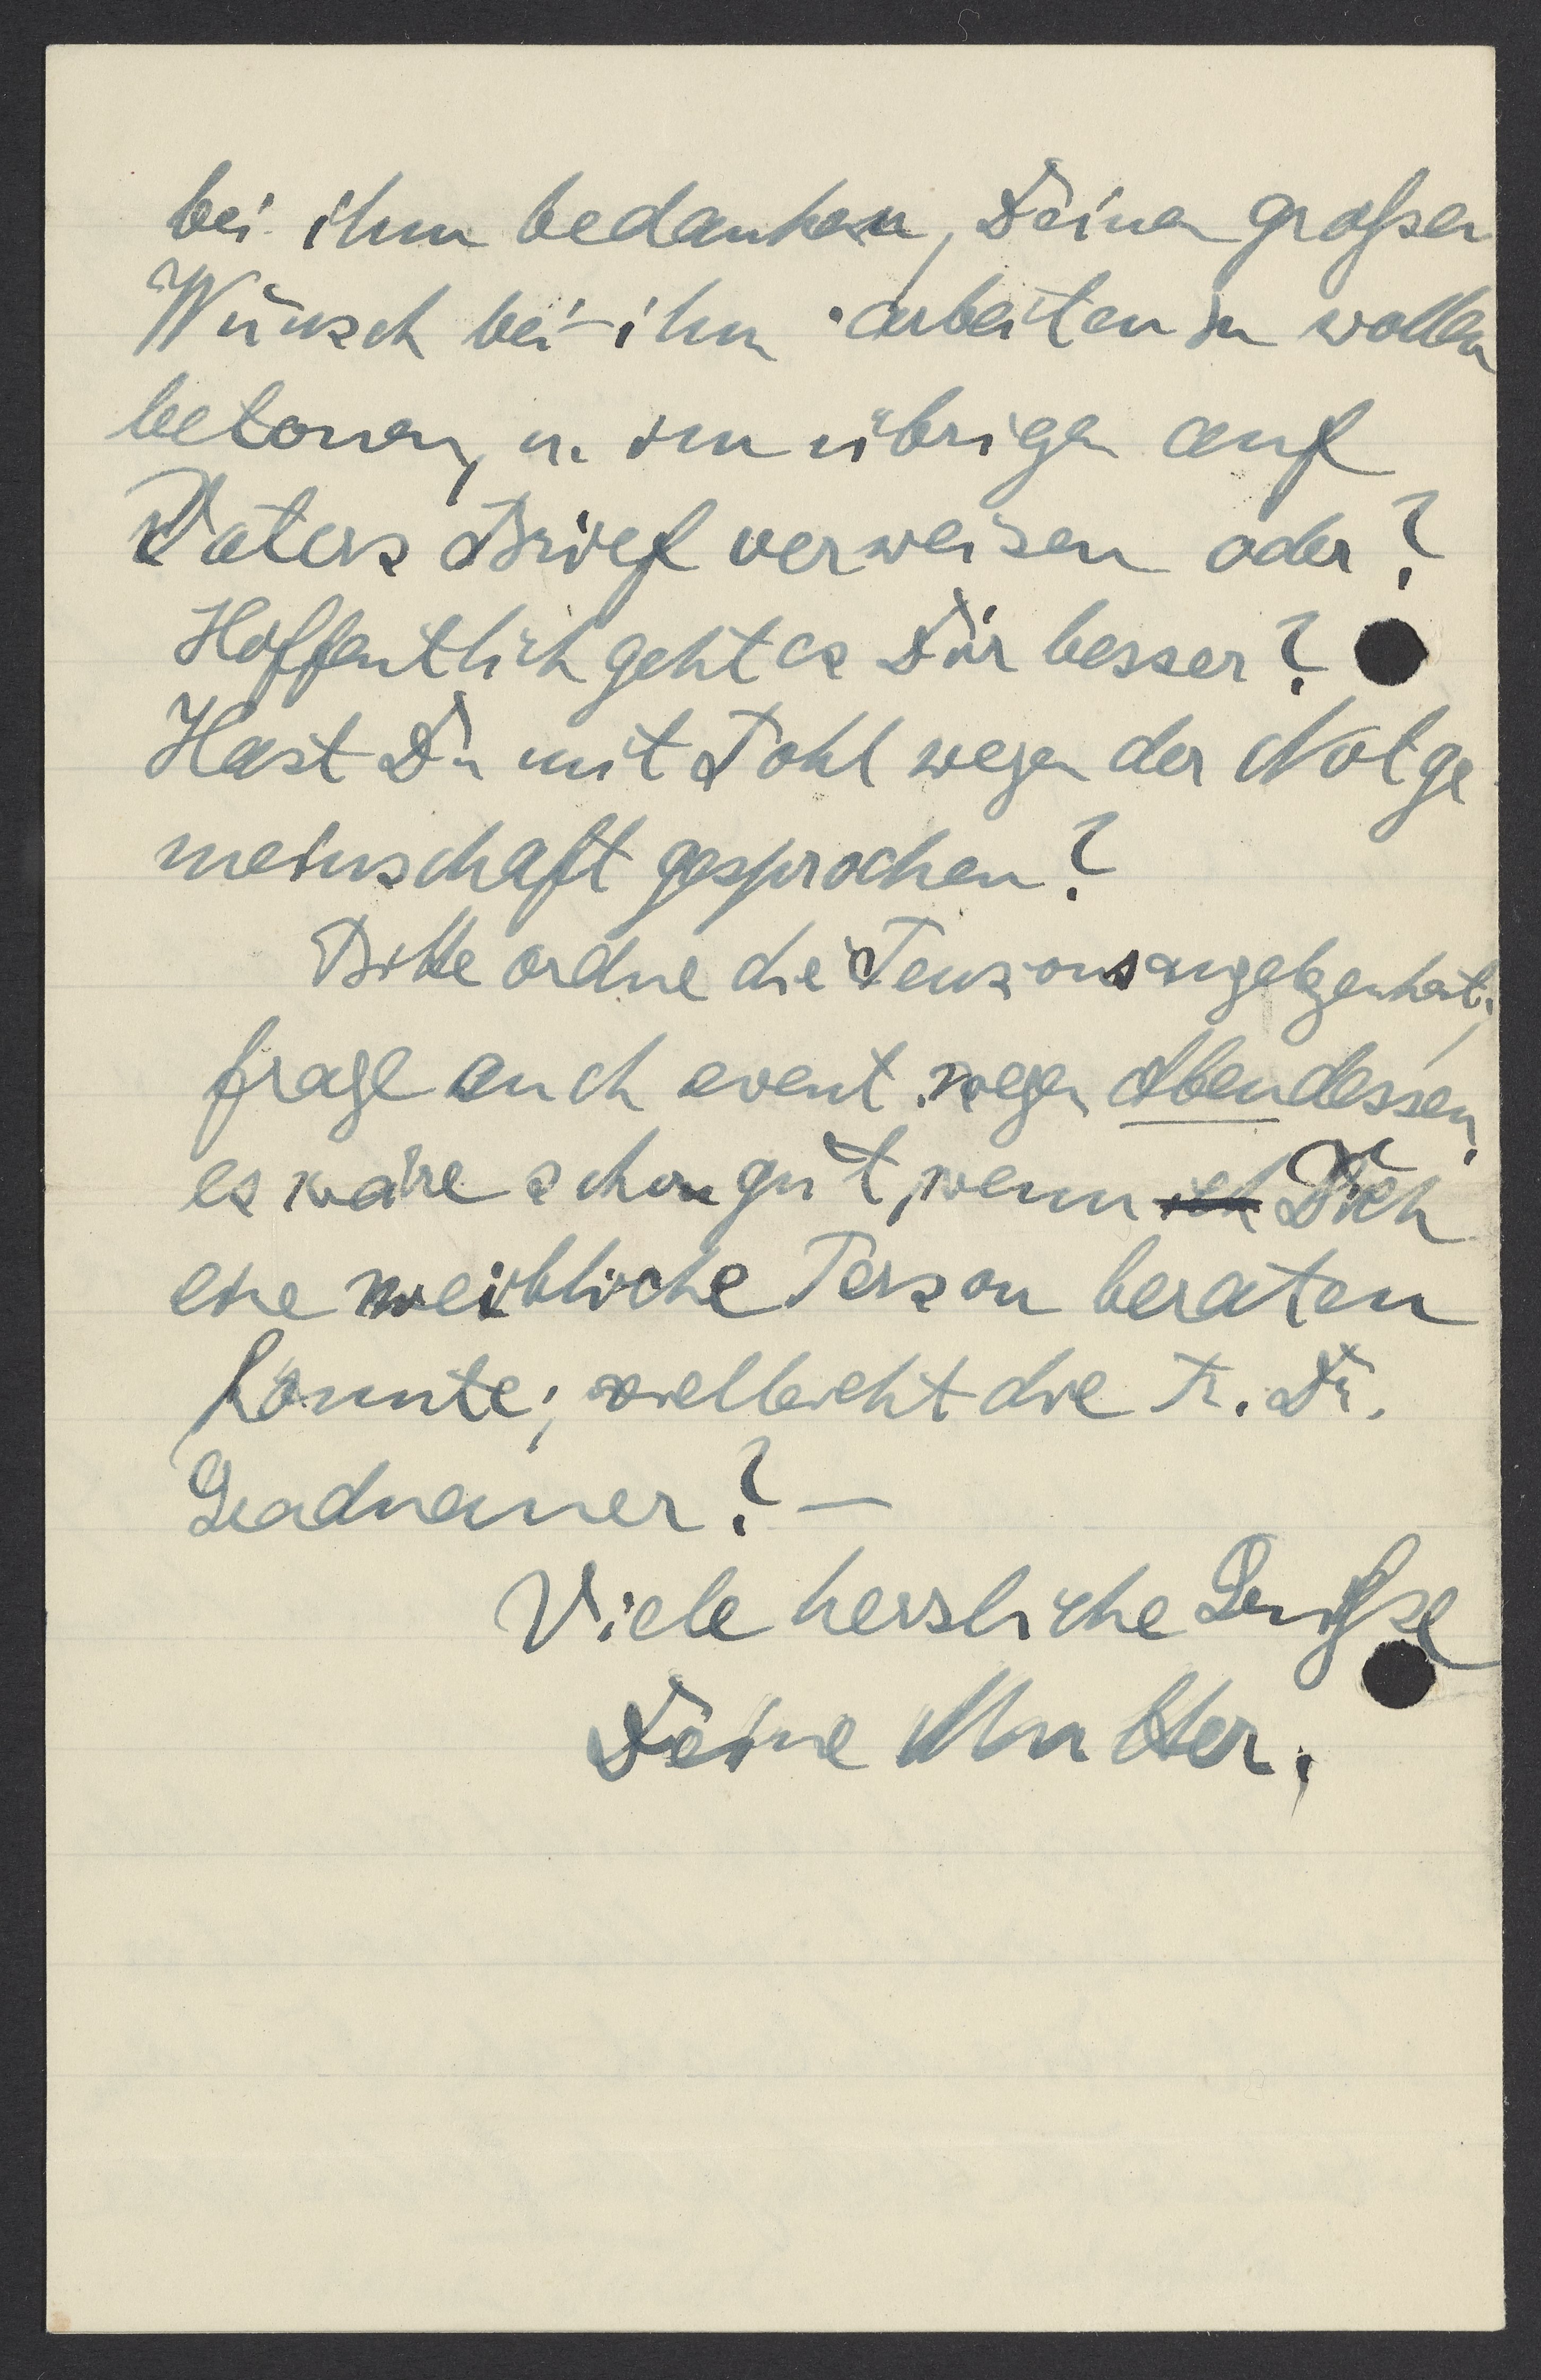 bei ihm bedanken, Deinen großen
Wunsch bei ihm arbeiten zu wollen
betonen, u. im übrigen auf
Vaters Brief verweisen oder?
Hoffentlich geht es Dir besser?
Hast Du mit Pohl wegen der Notge
meinschaft gesprochen?
Bitte ordne die Pensionsangelegenheit,
frage auch event. wegen Abendessen,
es wäre schon gut, wenn ich Dich
eine weibliche Person beraten
könnte; vielleicht die Fr. Dr.
Gradnauer? –
Viele herzliche Grüße
Deine Mutter.